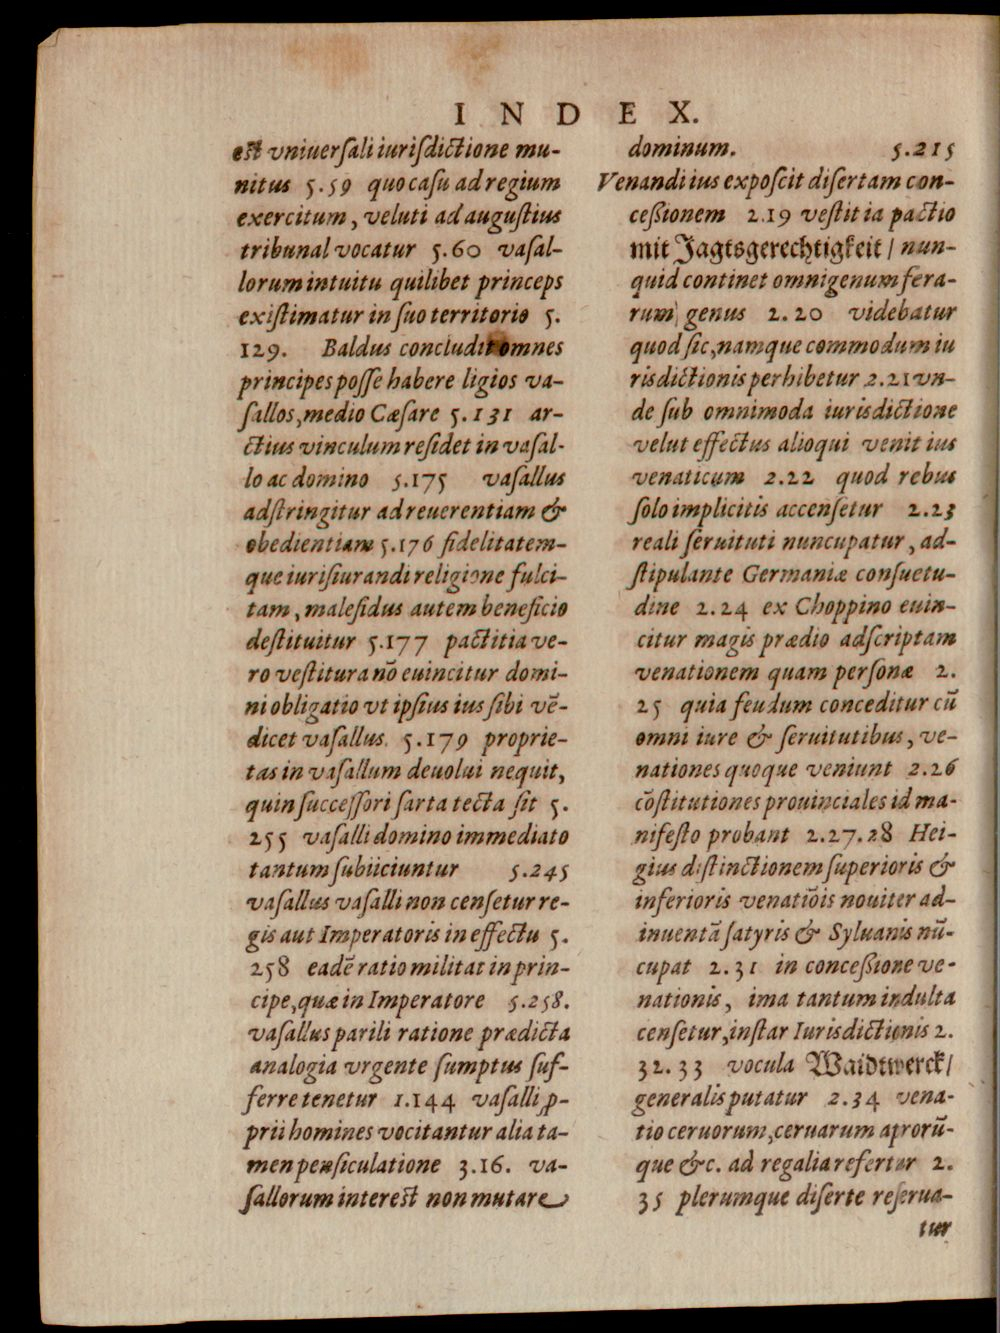 INDEX.
est vniuersali iurisdictione mu-
nitus 5.59 quo casu ad regium
exercitum, veluti ad augustius
tribunal vocatur 5.60 vasal-
lorum intuitu quilibet princeps
existimatur in suo territorio 5.
129. Baldus concludit omnes
principes posse habere ligios va-
sallos, medio Cæsare 5.131 ar-
ctius vinculum residet in vasal-
lo ac domino 5.175 vasallus
adstringitur ad reuerentiam &
obedientiam 5.176 fidelitatem-
que iurisiurandi religione fulci-
tam, malefidus autem beneficio
destituitur 5.177 pactitia ve-
ro vestitura nō euincitur domi-
ni obligatio vt ipsius ius sibi vē-
dicet vasallus. 5.179 proprie-
tas in vasallum deuolui nequit,
quin successori sarta tecta sit 5.
255 vasalli domino immediato
tantum subiiciuntur 5.245
vasallus vasalli non censetur re-
gis aut Imperatoris in effectu 5.
258 eadē ratio militat in prin-
cipe, quæ in Imperatore 5.258.
vasallus parili ratione prædicta
analogia vrgente sumptus suf-
ferre tenetur 1.144 vasalli ꝓ-
prii homines vocitantur alia ta-
men pensiculatione 3.16. va-
sallorum interest non mutare
dominum. 5.215
Venandi ius exposcit disertam con-
cessionem 2.19 vestitia pactio
mit Jagtsgerechtigkeit / nun-
quid continet omnigenum fera-
rum genus 2.20 videbatur
quod sic, namque commodum iu
risdictionis perhibetur 2.21 vn-
de sub omnimoda iurisdictione
velut effectus alioqui venit ius
venaticum 2.22 quod rebus
solo implicitis accensetur 2.23
reali seruituti nuncupatur, ad-
stipulante Germaniæ consuetu-
dine 2.24 ex Choppino euin-
citur magis prædio adscriptam
venationem quam personæ 2.
25 quia feudum conceditur cū
omni iure & seruitutibus, ve-
nationes quoque veniunt 2.26
cōstitutiones prouinciales id ma-
nifesto probant 2.27.28 Hei-
gius distinctionem superioris &
inferioris venatiōis nouiter ad-
inuentā satyris & Syluanis nū-
cupat 2.31 in concessione ve-
nationis, ima tantum indulta
censetur, instar Iurisdictionis 2.
32.33 vocula Waidtwerck /
generalis putatur 2.34 vena-
tio ceruorum, ceruarum aprorū-
que &c. ad regalia refertur 2.
35 plerumque diserte reserua-
tur